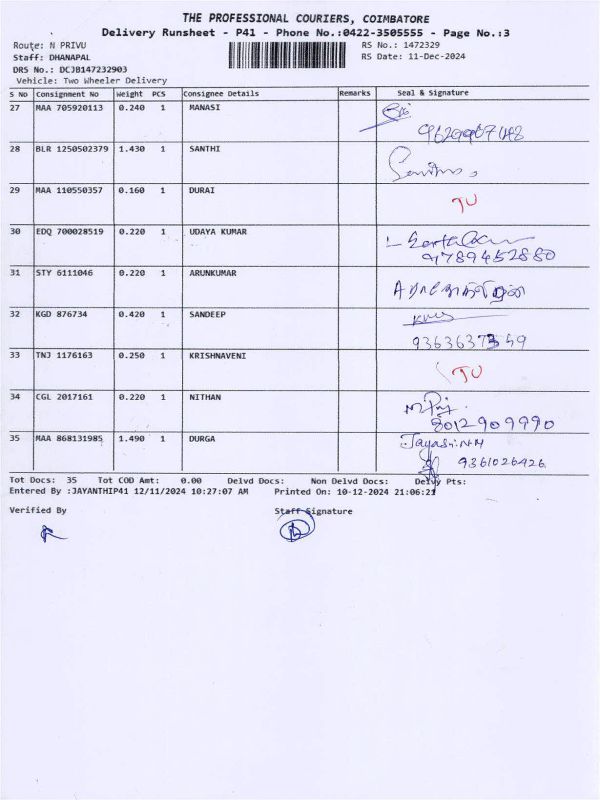 THE PROFESSIONAL COURIERS, COIMBATORE
Delivery Runsheet - P41 - Phone No.:0422-3505555 - Page No.:3
Route: N PRIVU RS No.: 1472329
Staff: DHANAPAL RS Date: 11-Dec-2024
DRS No.: DCJB147232903
Vehicle: Two Wheeler Delivery
S No Consignment No Weight PCS Consignee Details Remarks Seal & Signature
27 MAA 705920113 0.240 1 MANASI
28 BLR 1250502379 1.430 1 SANTHI
29 MAA 110550357 0.160 1 DURAI TU
30 EDQ 700028519 0.220 1 UDAYA KUMAR
9789452880
31 STY 6111046 0.220 1 ARUNKUMAR
32 KGD 876734 0.420 1 SANDEEP
33 TNJ 1176163 0.250 1 KRISHNAVENI TU
34 CGL 2017161 0.220 1 NITHAN
8012909990
35 MAA 868131985 1.490 1 DURGA
9361026426
Tot Docs: 35 Tot COD Amt: 0.00 Delvd Docs: Non Delvd Docs: Delvy Pts:
Entered By :JAYANTHIP41 12/11/2024 10:27:07 AM Printed On: 10-12-2024 21:06:21
Verified By Staff Signature